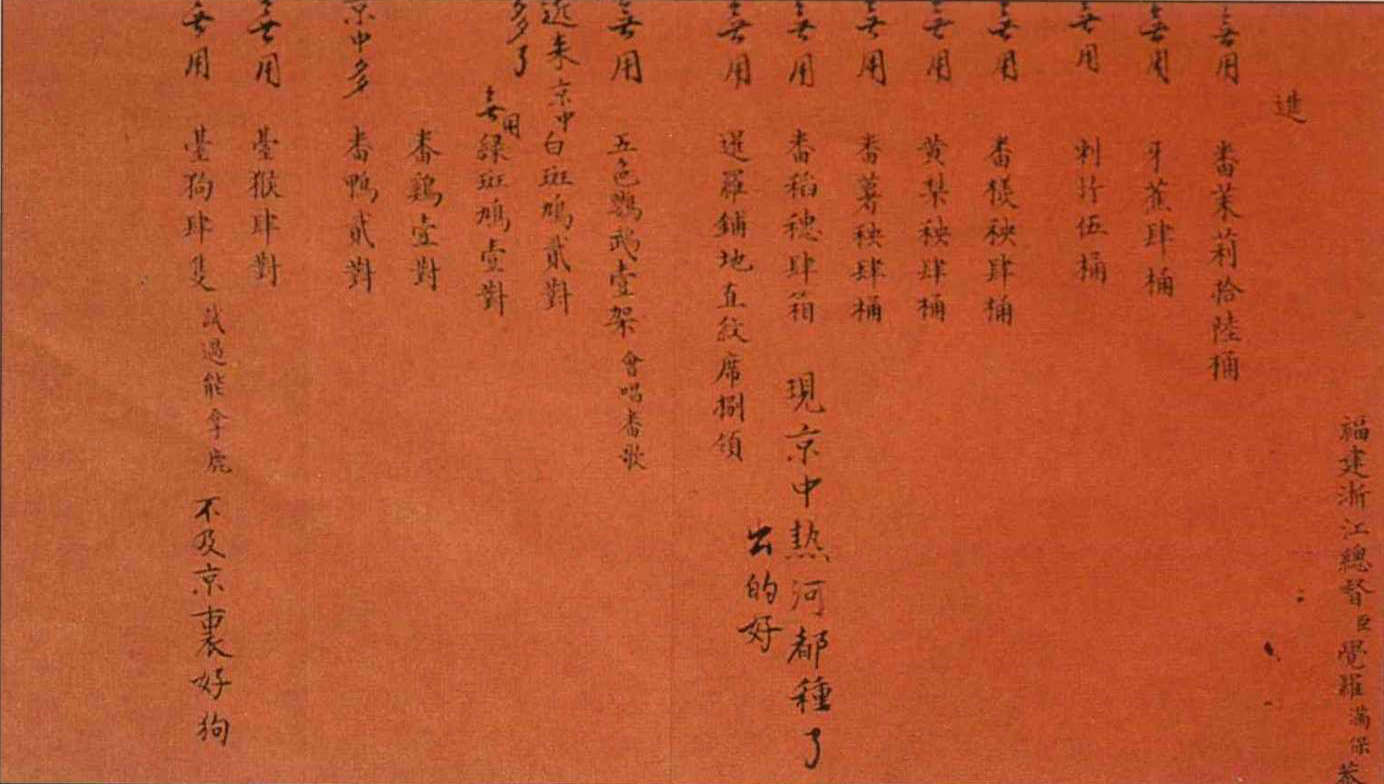 福建浙江總督臣覺羅滿保恭
進
無用 番茉莉拾陸桶
無用 牙蕉肆桶
無用 刺竹伍桶
無用 番檨秧肆桶
無用 黄梨秧肆桶
無用 番薯秧肆桶
無用 番稻穗肆箱 現京中熱河都種了
出的好
無用 暹羅鋪地直紋席捌領
無用 五色鸚武壹架 會唱番歌
近来京中 白斑鳩貳對
多了
無用 綠斑鳩壹對
番鷄壹對
京中多 番鴨貳對
無用 臺猴肆對
無用 臺狗肆隻 試過能拿鹿 不及京裏好狗